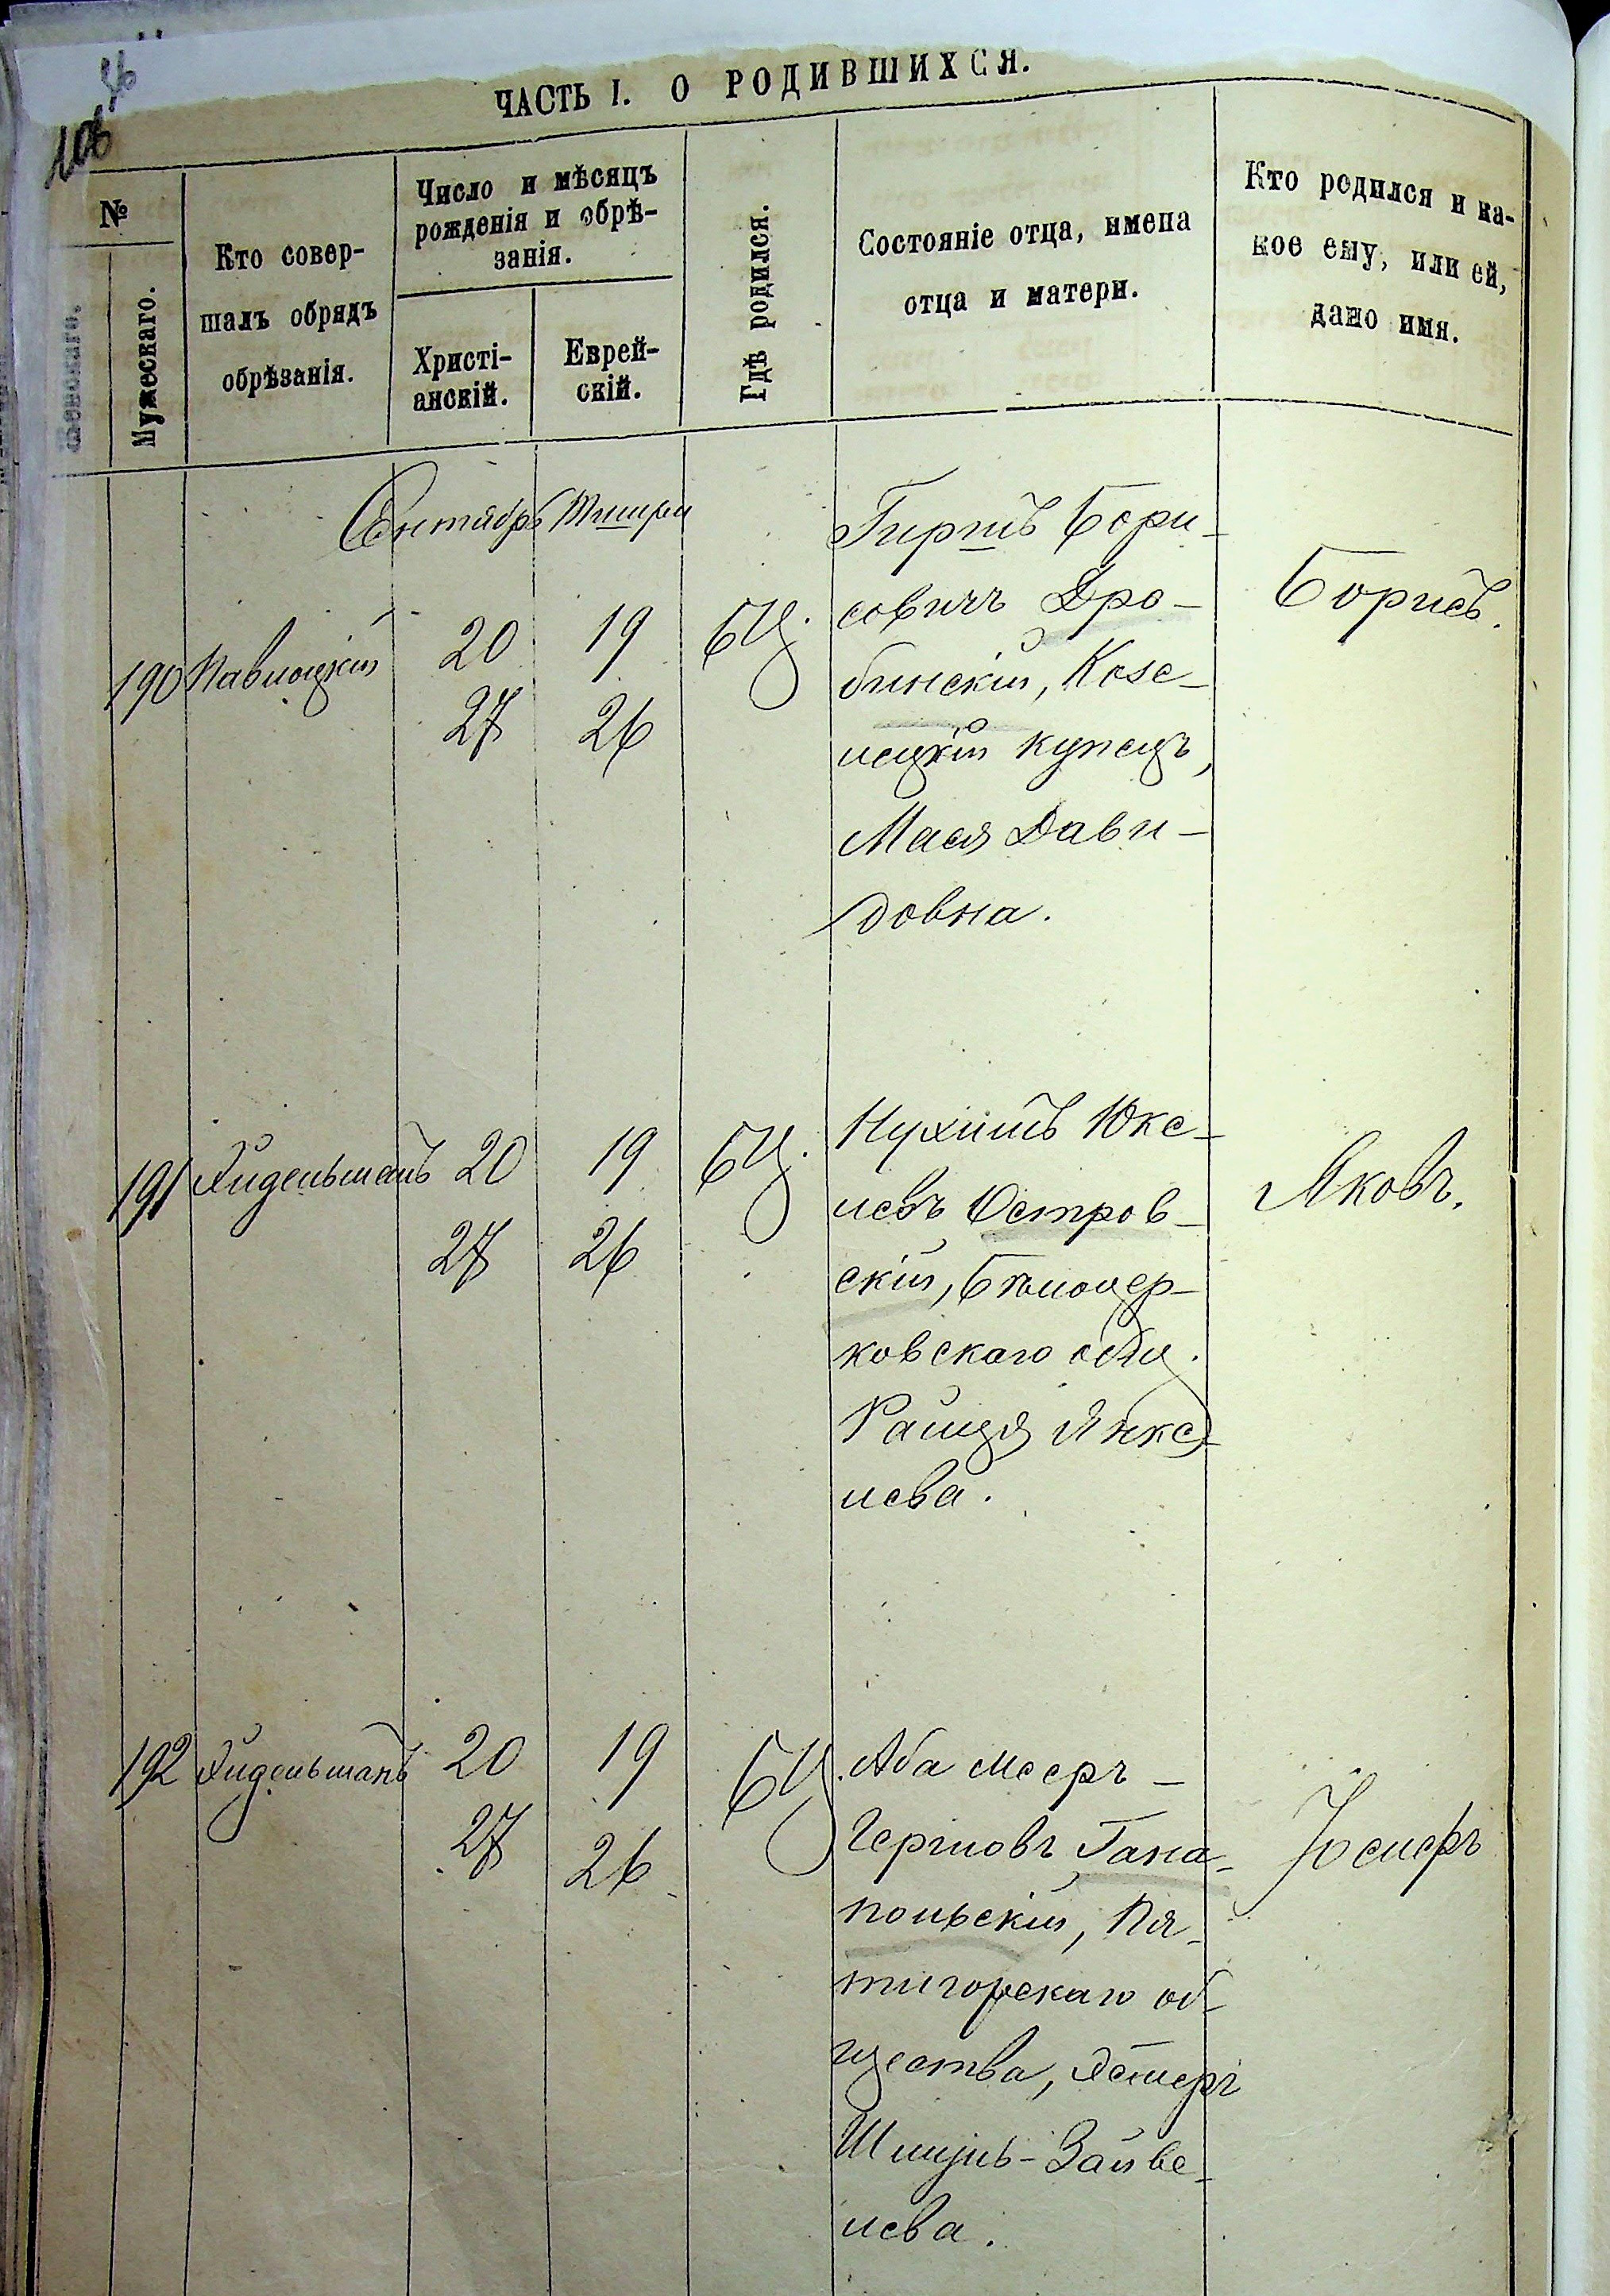 106
ЧАСТЬ I. О РОДИВШИХСЯ.
№
Женскаго.
Мужескаго.
Кто совер-
шалъ обрядъ
обрѣзанія.
Число и мѣсяцъ
рожденія и обрѣ-
занія.
Христі-
анскій.
Еврей-
скій.
Гдѣ родился.
Состояніе отца, имена
отца и матери.
Кто родился и ка-
кое ему, или ей,
дано имя.
Сентябрь Тишри
190 Павлоцкій
20 19
27 26
БЦ.
Гиршъ Бори-
совичъ Дро-
бинскій, Козе-
лецкій купецъ,
Мася Дави-
довна.
Борисъ.
191 Эйдельманъ
20 19
27 26
БЦ.
Нухимъ Юке-
левъ Остров-
скій, Бѣлоцер-
ковскаго общ.
Рейзя Янке-
лева.
Яковъ.
192 Эйдельманъ
20 19
27 26
БЦ.
Аба Мееръ-
Гершовъ Гана-
польскій, Пя-
тигорскаго об-
щества, Эстеръ
Шмуль-Зайве-
лева.
Іосифъ